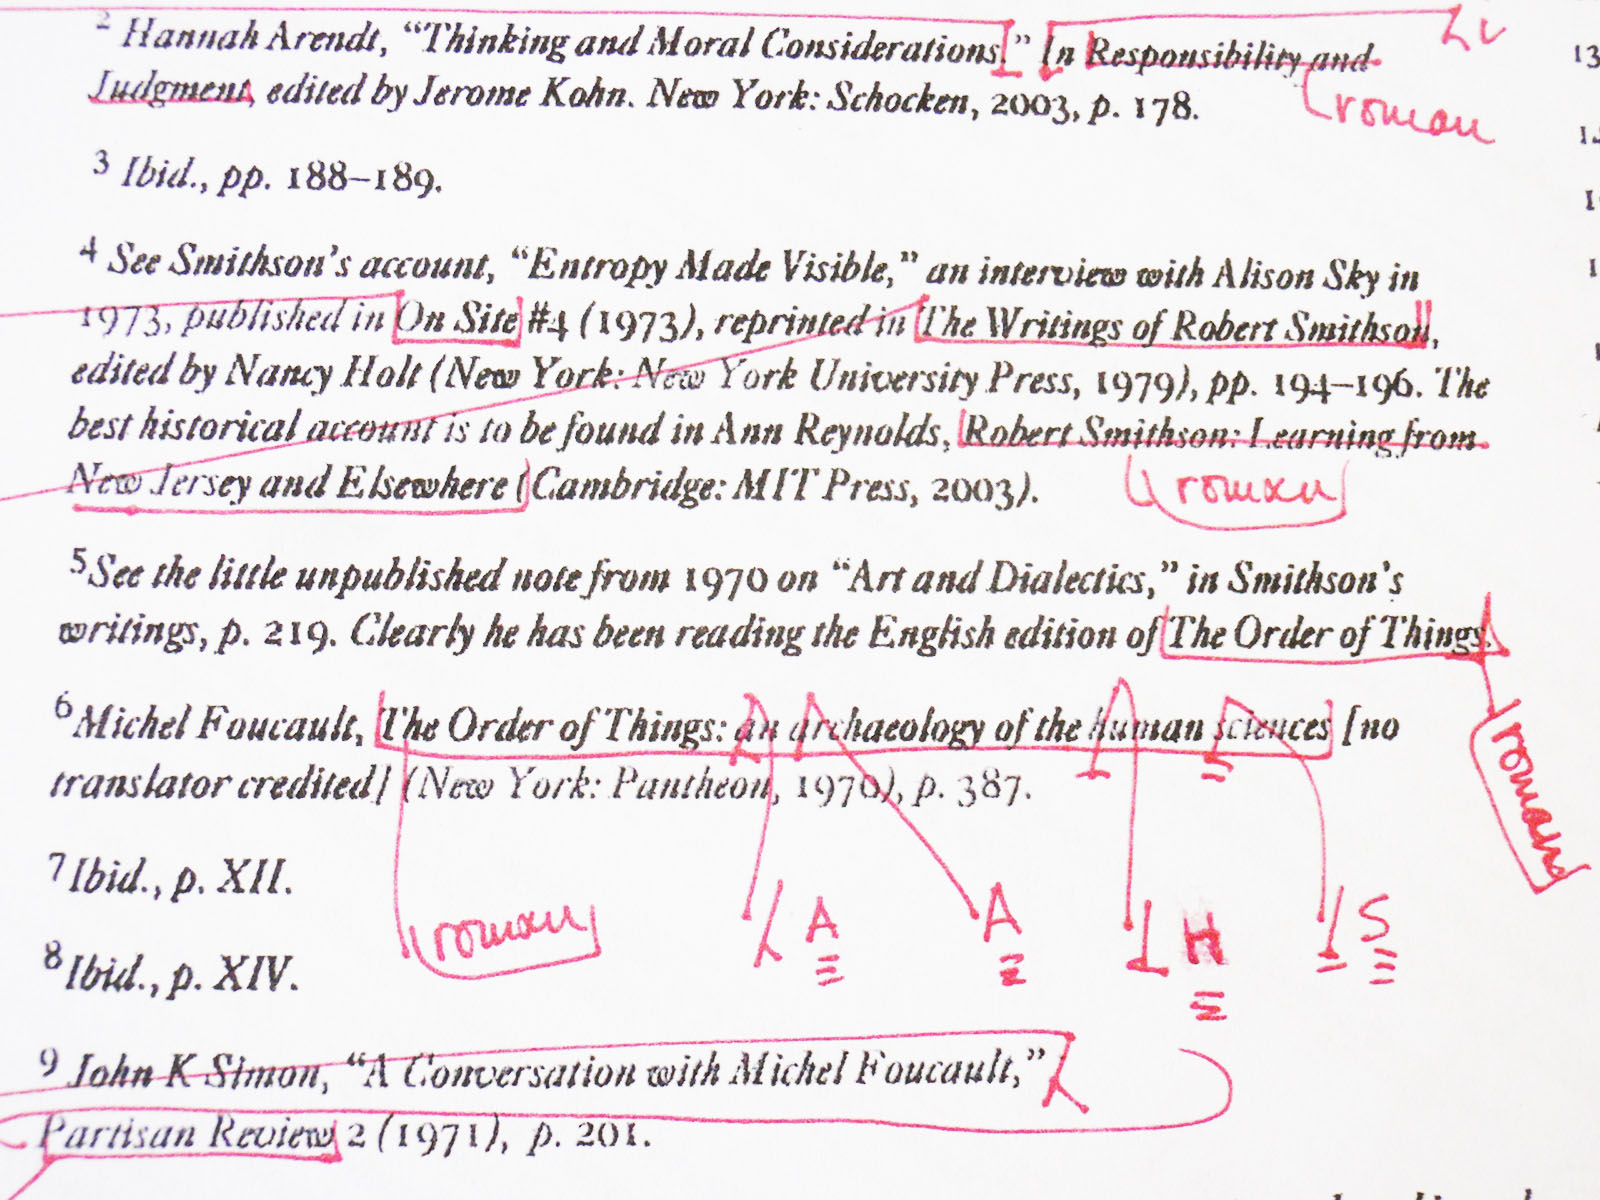 2 Hannah Arendt, “Thinking and Moral Considerations.” In Responsibility and
Judgment, edited by Jerome Kohn. New York: Schocken, 2003, p. 178.
roman
3 Ibid., pp. 188–189.
4 See Smithson’s account, “Entropy Made Visible,” an interview with Alison Sky in
1973, published in On Site #4 (1973), reprinted in The Writings of Robert Smithson,
edited by Nancy Holt (New York: New York University Press, 1979), pp. 194–196. The
best historical account is to be found in Ann Reynolds, Robert Smithson: Learning from
New Jersey and Elsewhere (Cambridge: MIT Press, 2003).
roman
5 See the little unpublished note from 1970 on “Art and Dialectics,” in Smithson’s
writings, p. 219. Clearly he has been reading the English edition of The Order of Things.
roman
6 Michel Foucault, The Order of Things: an archaeology of the human sciences [no
translator credited] (New York: Pantheon, 1970), p. 387.
7 Ibid., p. XII.
roman A A H S
8 Ibid., p. XIV.
9 John K Simon, “A Conversation with Michel Foucault,”
Partisan Review 2 (1971), p. 201.
13